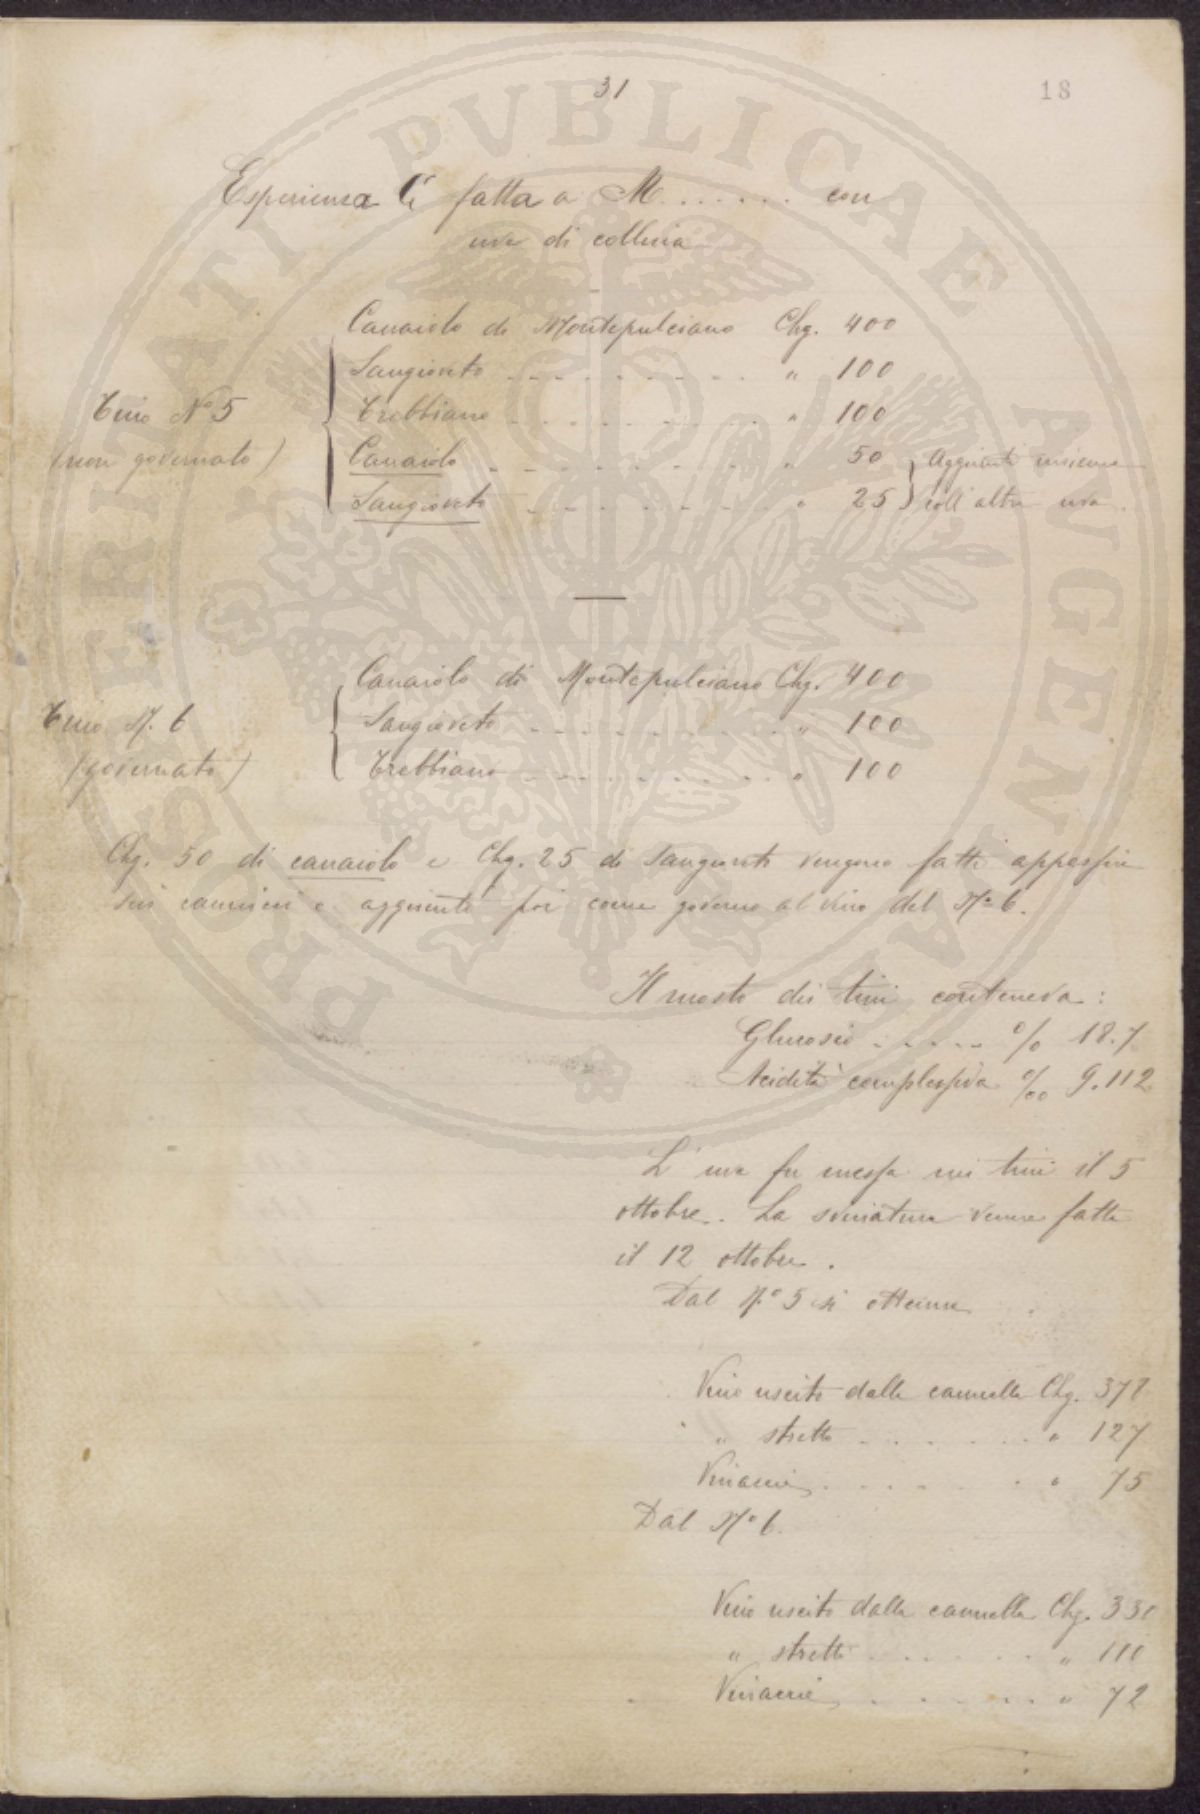 31
18
Esperienza C fatta a M....... con
uva di collina
Canaiolo di Montepulciano Chg. 400
Sangioveto - - - - - - - - - " 100
Tino No 5
Trebbiano - - - - - - - - - " 100
(non governato)
Canaiolo - - - - - - - - - " 50 Aggiunti insieme
Sangioveto - - - - - - - - - " 25 coll'altra uva.
Canaiolo di Montepulciano Chg. 400
Tino N. 6
Sangioveto - - - - - - - - - " 100
(governato)
Trebbiano - - - - - - - - - " 100
Chg. 50 di canaiolo e Chg. 25 di Sangioveto vengono fatti appassire
sui cannicci e aggiunti poi come governo al vino del No 6.
Il mosto dei tini conteneva:
Glucosio - - - - - % 18.7
Acidità complessiva ‰ 9.112
L'uva fu messa nei tini il 5
ottobre. La svinatura venne fatta
il 12 ottobre.
Dal No 5 si ottenne
Vino uscito dalla cannella Chg. 378
" stretto - - - - - - - " 127
Vinaccie - - - - - - - " 75
Dal No 6.
Vino uscito dalla cannella Chg. 330
" stretto - - - - - - - " 110
Vinaccie - - - - - - - " 72
PROSPERITATI PVBLICAE AVGENDAE